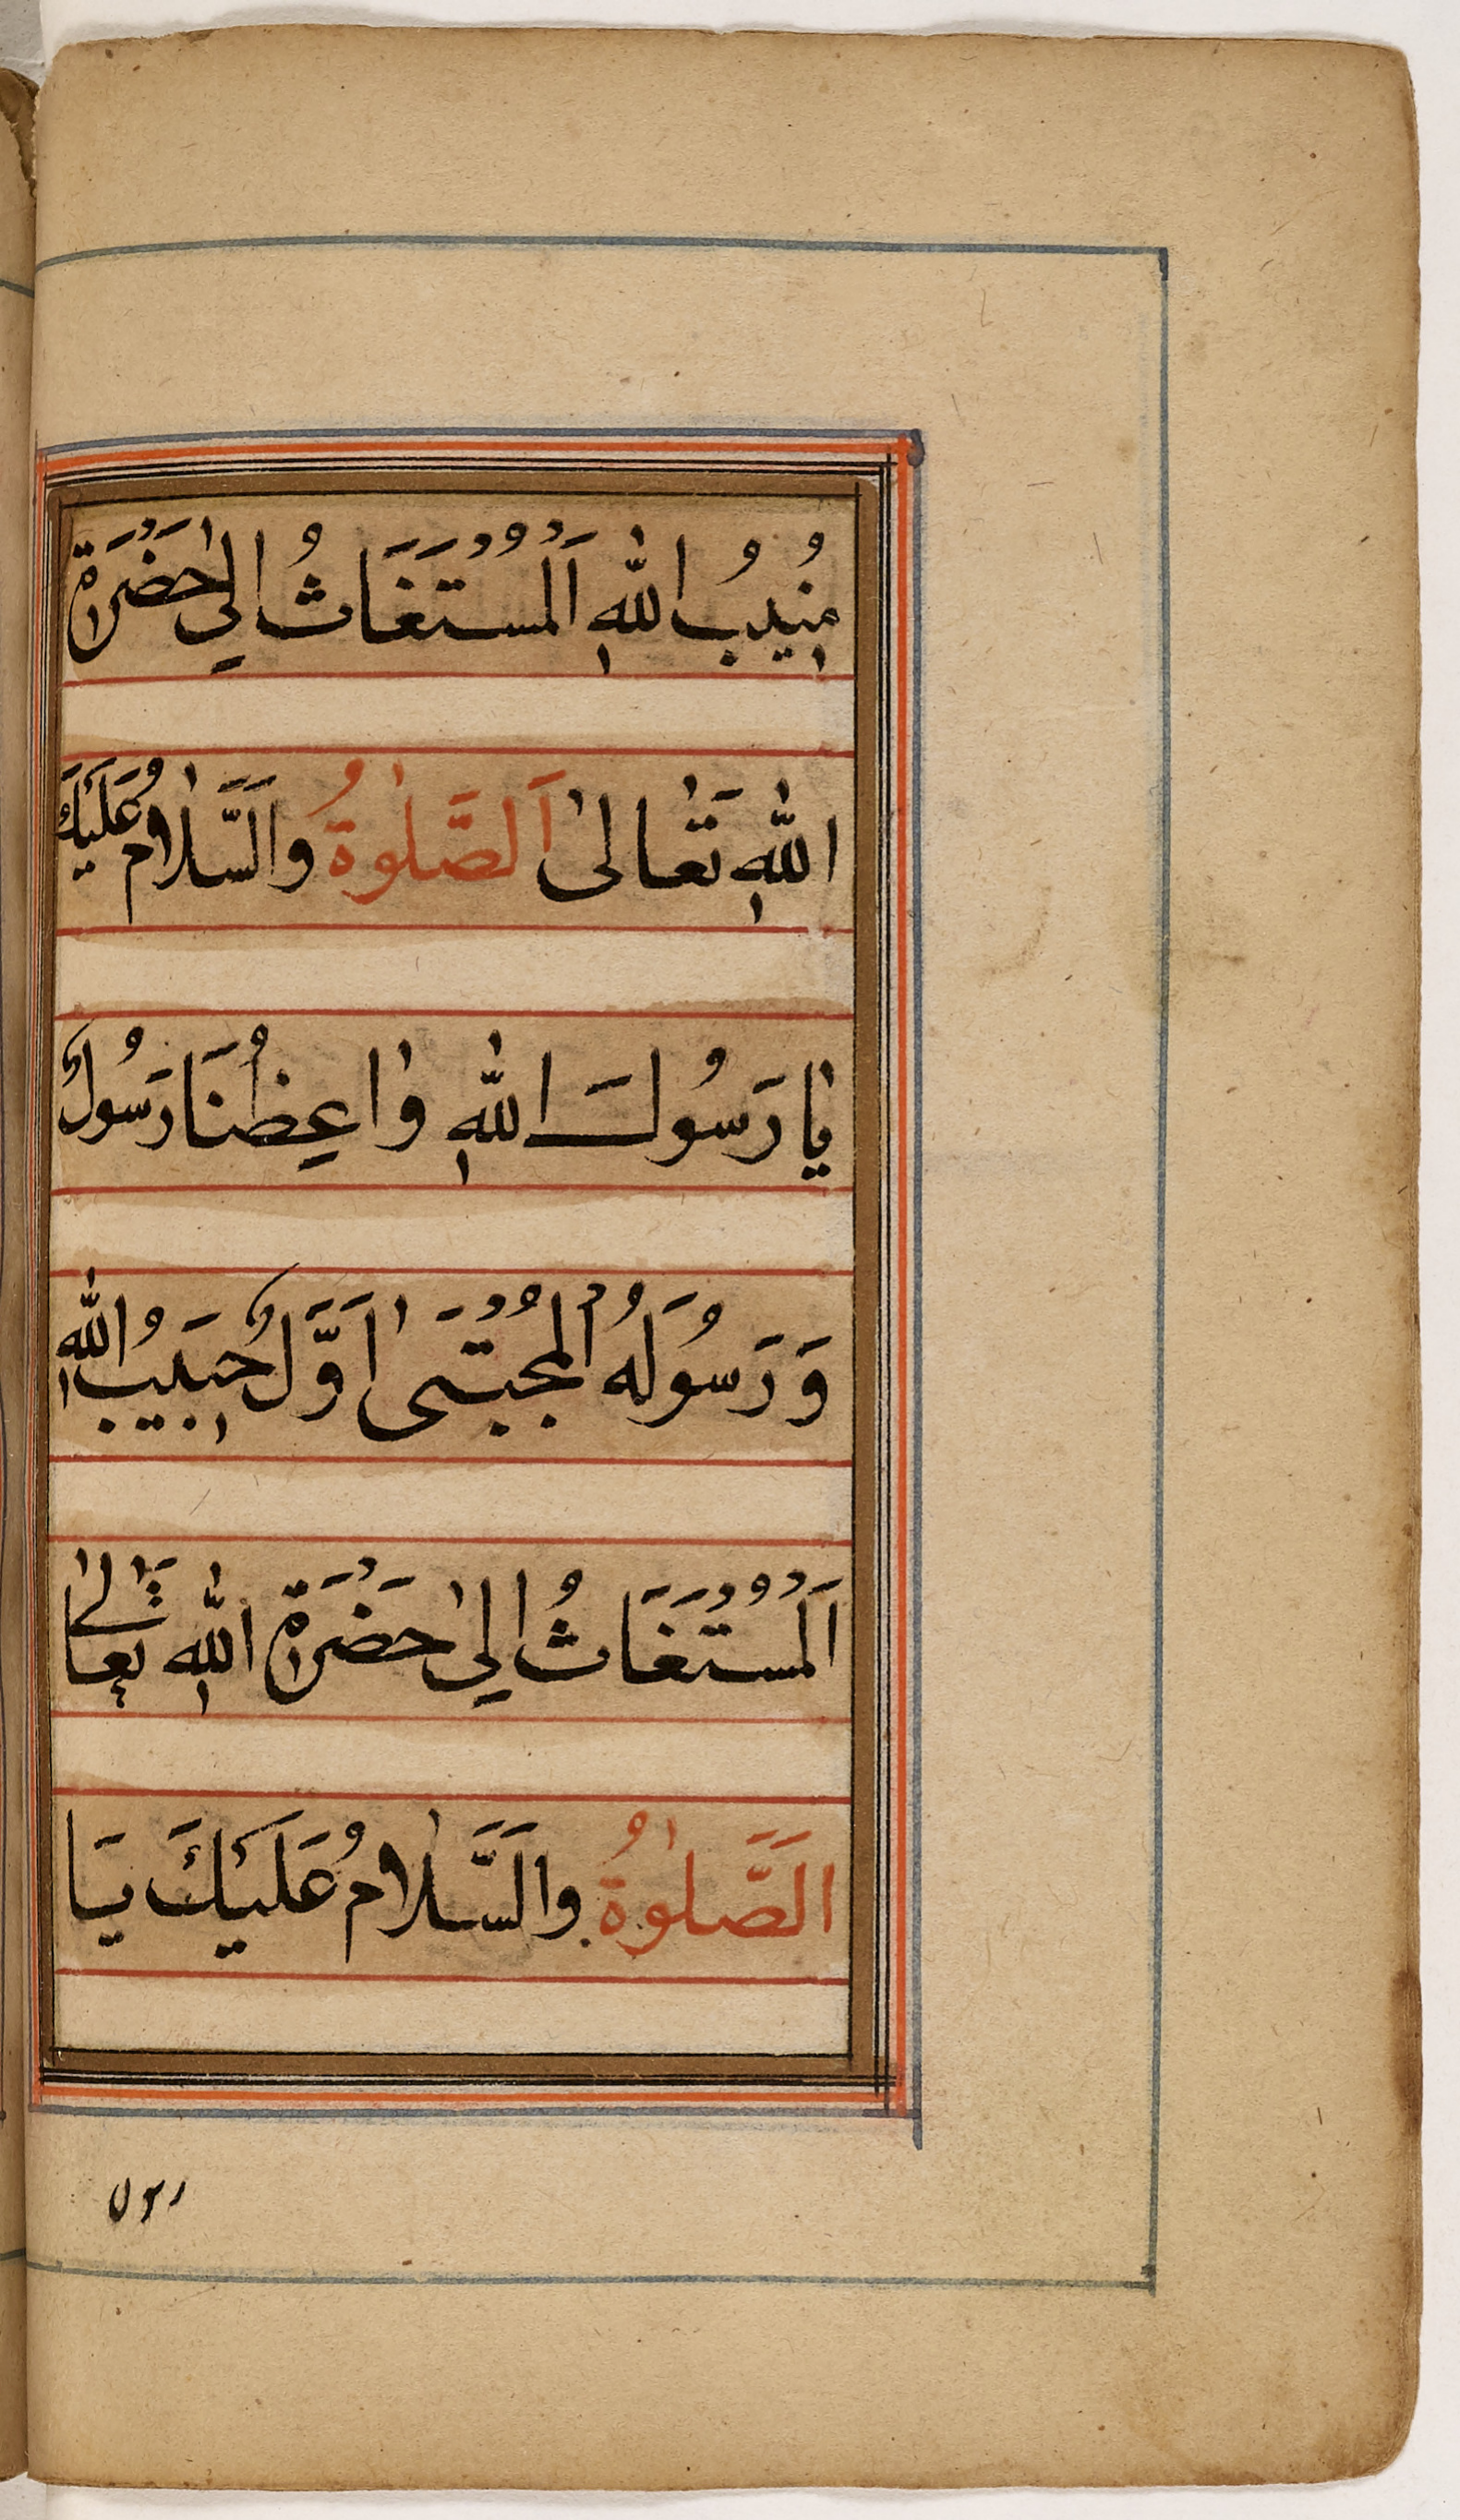 مُنِيبُ اللهِ اَلْمُسْتَغَاثُ اِلیٰ حَضْرَةِ
اللهِ تَعَالیٰ اَلصَّلٰوةُ وَالسَّلَامُ عَلَيْكَ
يَا رَسُولَ اللهِ وَاعِظُنَا رَسُولٌ
وَ رَسُولَهُ الْمُجْتَبیٰ اَوَّلٌ حَبِيبُ اللهِ
اَلْمُسْتَغَاثُ اِلیٰ حَضْرَةِ اللهِ تَعَالیٰ
اَلصَّلٰوةُ وَالسَّلَامُ عَلَيْكَ يَا